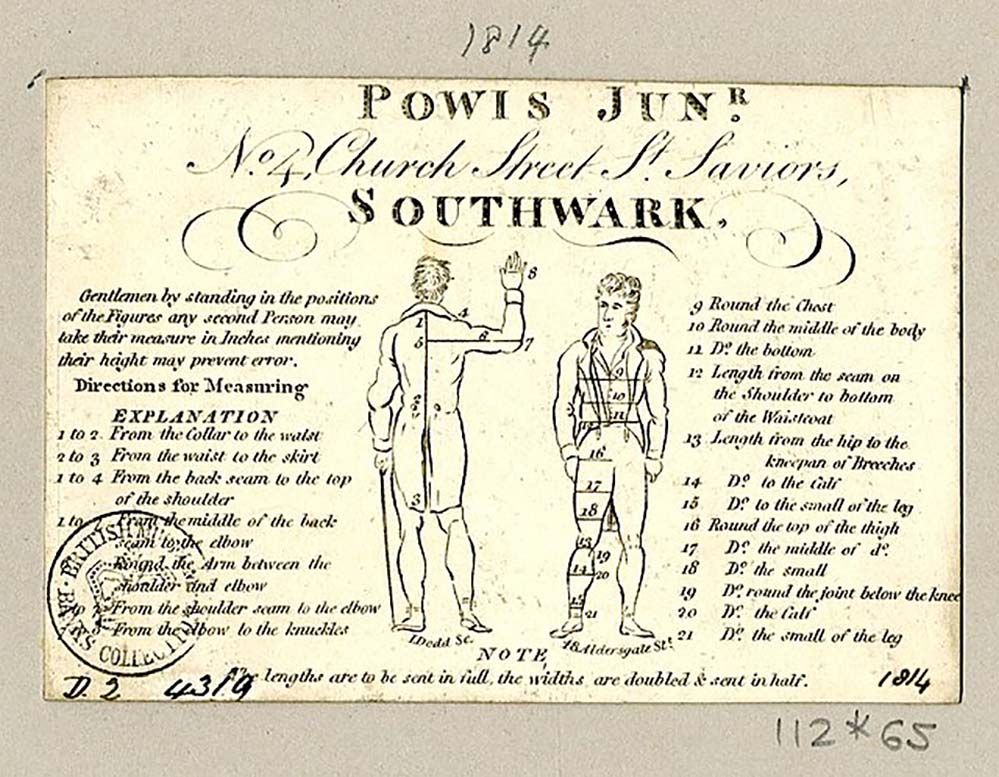 1814
POWIS JUNR.
No. 4, Church Street St. Saviors,
SOUTHWARK.
Gentlemen by standing in the positions
of the Figures any second Person may
take their measure in Inches mentioning
their height may prevent error.
Directions for Measuring
EXPLANATION
1 to 2. From the Collar to the waist
2 to 3 From the waist to the skirt
1 to 4 From the back seam to the top
of the shoulder
1 to From the middle of the back
seam to the elbow
Round the Arm between the
shoulder and elbow
to 7 From the shoulder seam to the elbow
8 From the elbow to the knuckles
1
4
5
6
7
8
2
3
9
10
11
16
17
18
13
19
14
20
15
21
9 Round the Chest
10 Round the middle of the body
11 Do. the bottom
12 Length from the seam on
the Shoulder to bottom
of the Waistcoat
13 Length from the hip to the
kneepan of Breeches
14 Do. to the Calf
15 Do. to the small of the leg
16 Round the top of the thigh
17 Do. the middle of do.
18 Do. the small
19 Do. round the joint below the knee
20 Do. the Calf
21 Do. the small of the leg
Dodd Sc.
18 Aldersgate St.
NOTE
lengths are to be sent in full, the widths are doubled & sent in half.
BRITISH MU
BANKS COLLECTION
D. 2 4319
1814
112*65